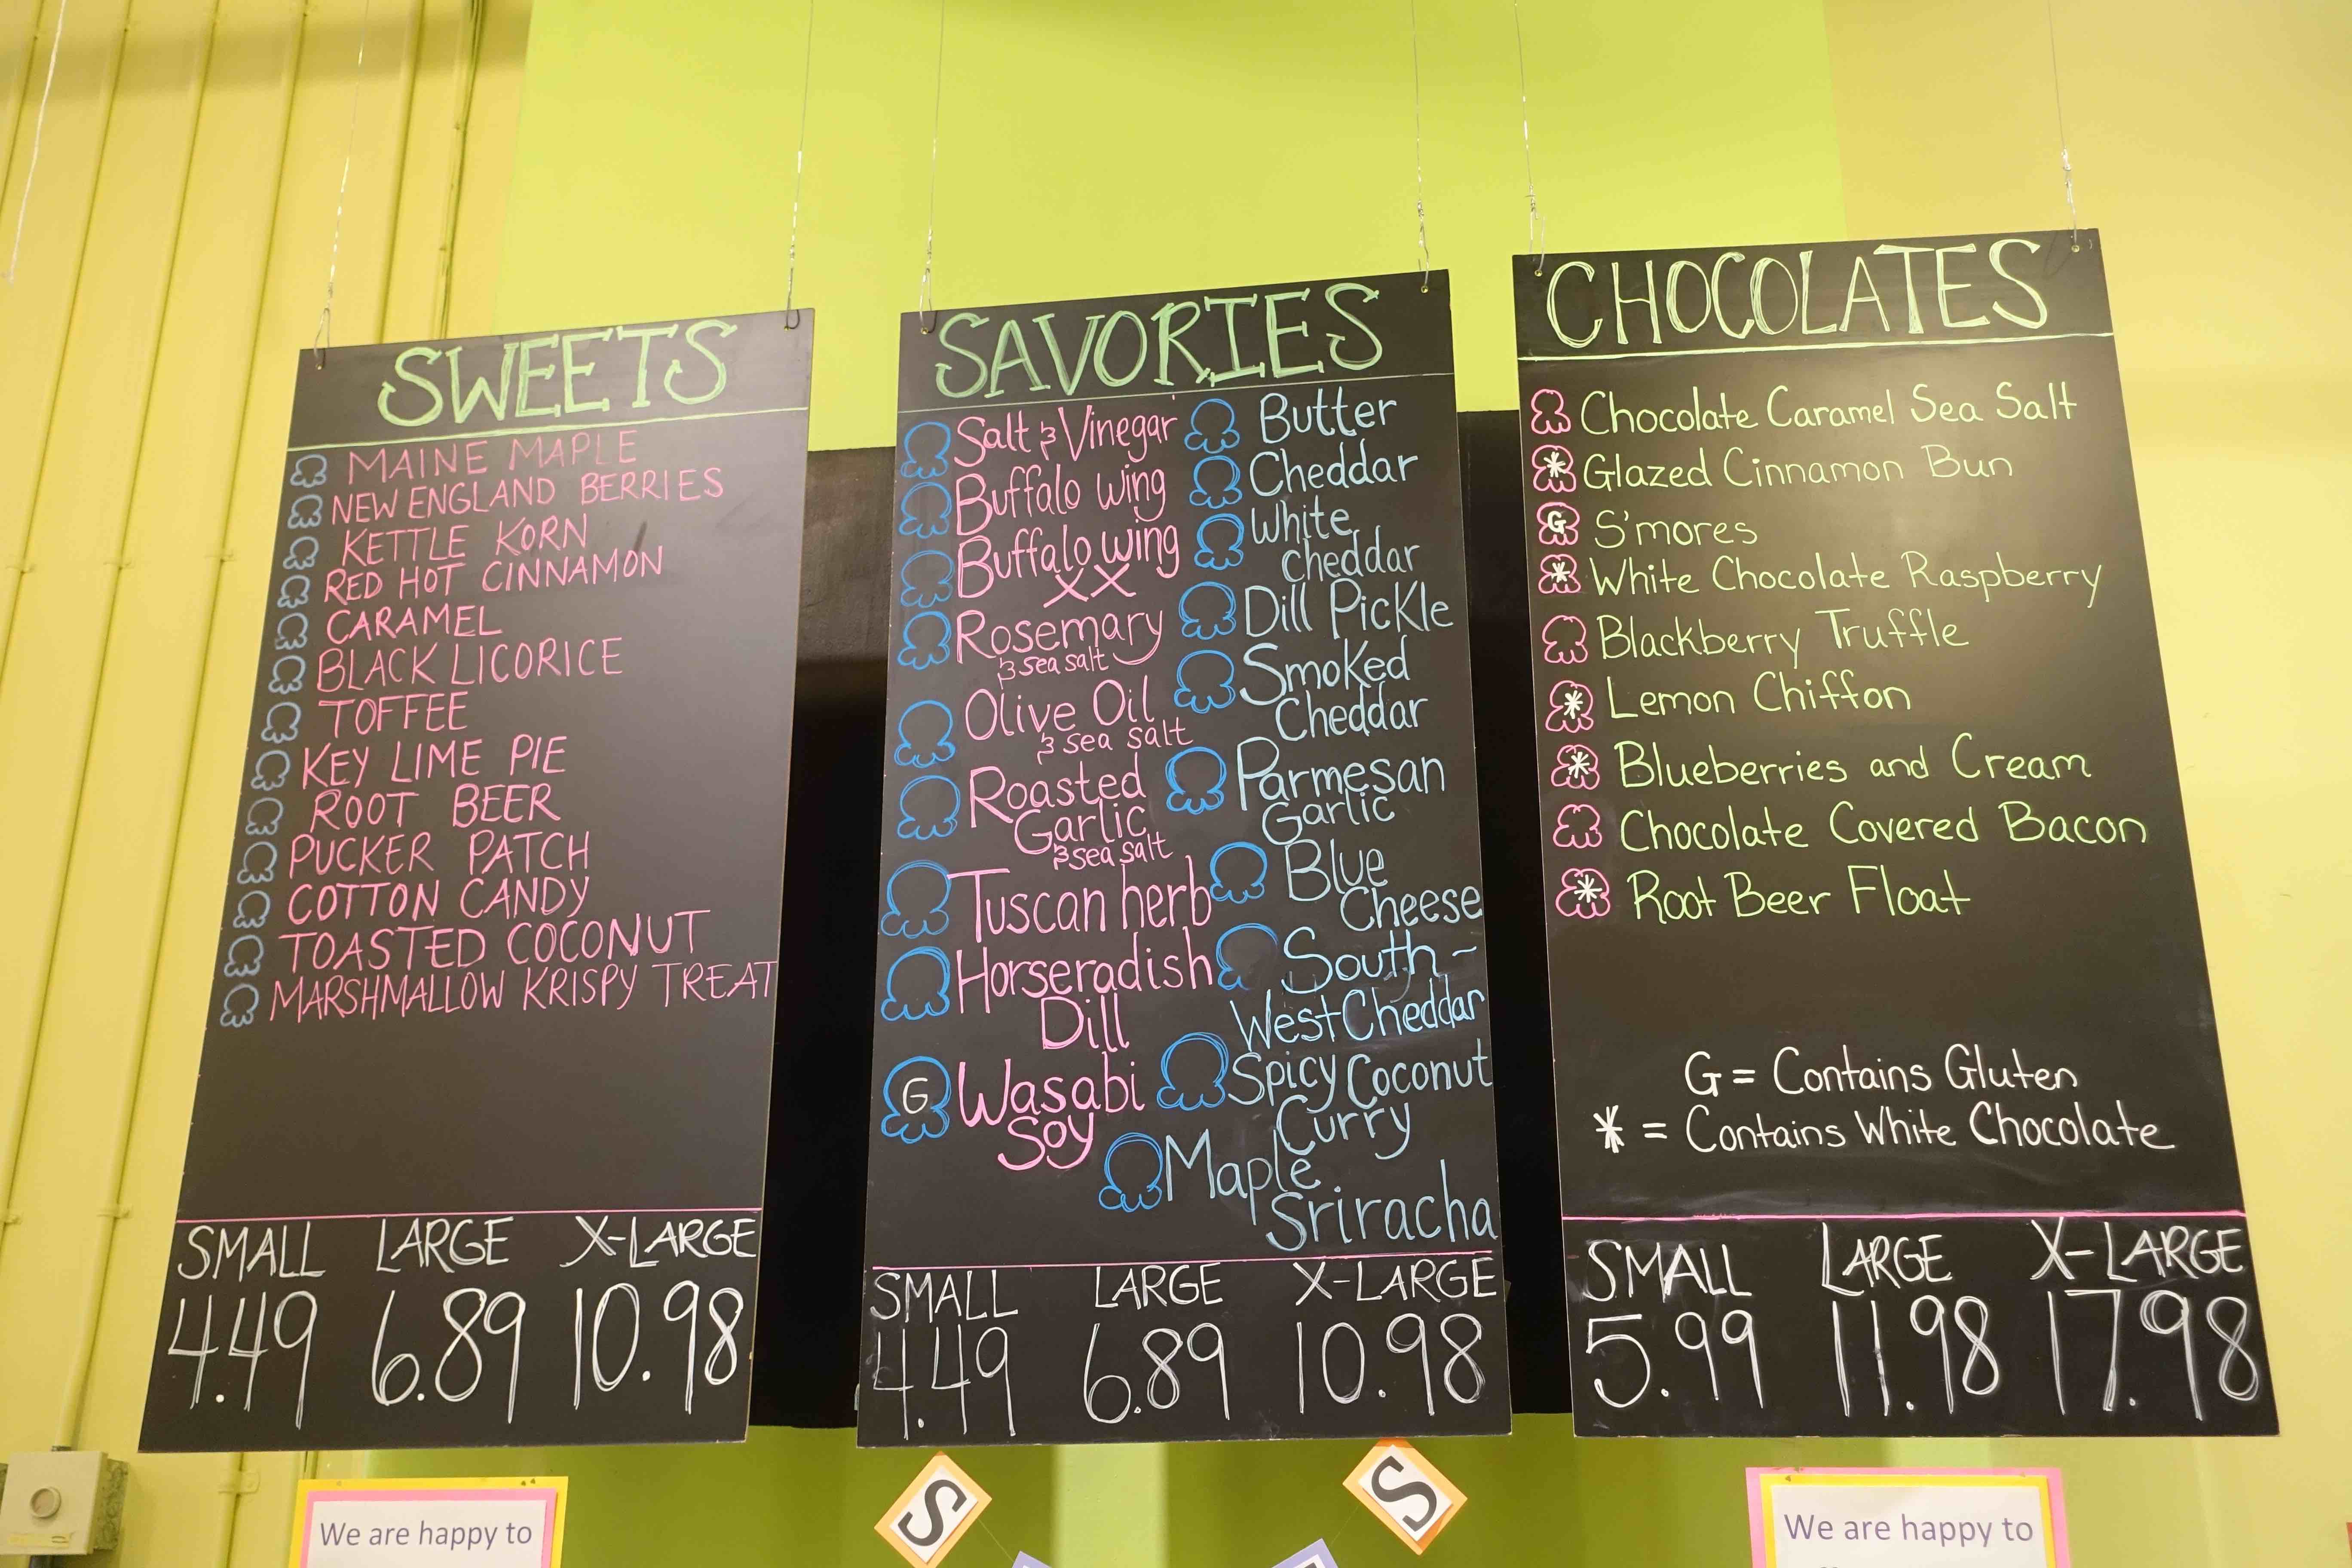 SWEETS
MAINE MAPLE
NEW ENGLAND BERRIES
KETTLE KORN
RED HOT CINNAMON
CARAMEL
BLACK LICORICE
TOFFEE
KEY LIME PIE
ROOT BEER
PUCKER PATCH
COTTON CANDY
TOASTED COCONUT
MARSHMALLOW KRISPY TREAT
SMALL LARGE X-LARGE
4.49 6.89 10.98
SAVORIES
Salt & Vinegar
Buffalo wing
Buffalo wing
XX
Rosemary
& sea salt
Olive Oil
& sea salt
Roasted
Garlic
& sea salt
Tuscan herb
Horseradish
Dill
G Wasabi
Soy
Butter
Cheddar
White
cheddar
Dill Pickle
Smoked
Cheddar
Parmesan
Garlic
Blue
Cheese
South-
West Cheddar
Spicy Coconut
Curry
Maple
Sriracha
SMALL LARGE X-LARGE
4.49 6.89 10.98
CHOCOLATES
Chocolate Caramel Sea Salt
* Glazed Cinnamon Bun
G S'mores
* White Chocolate Raspberry
Blackberry Truffle
* Lemon Chiffon
* Blueberries and Cream
Chocolate Covered Bacon
* Root Beer Float
G = Contains Gluten
* = Contains White Chocolate
SMALL LARGE X-LARGE
5.99 11.98 17.98
We are happy to
S
S
We are happy to